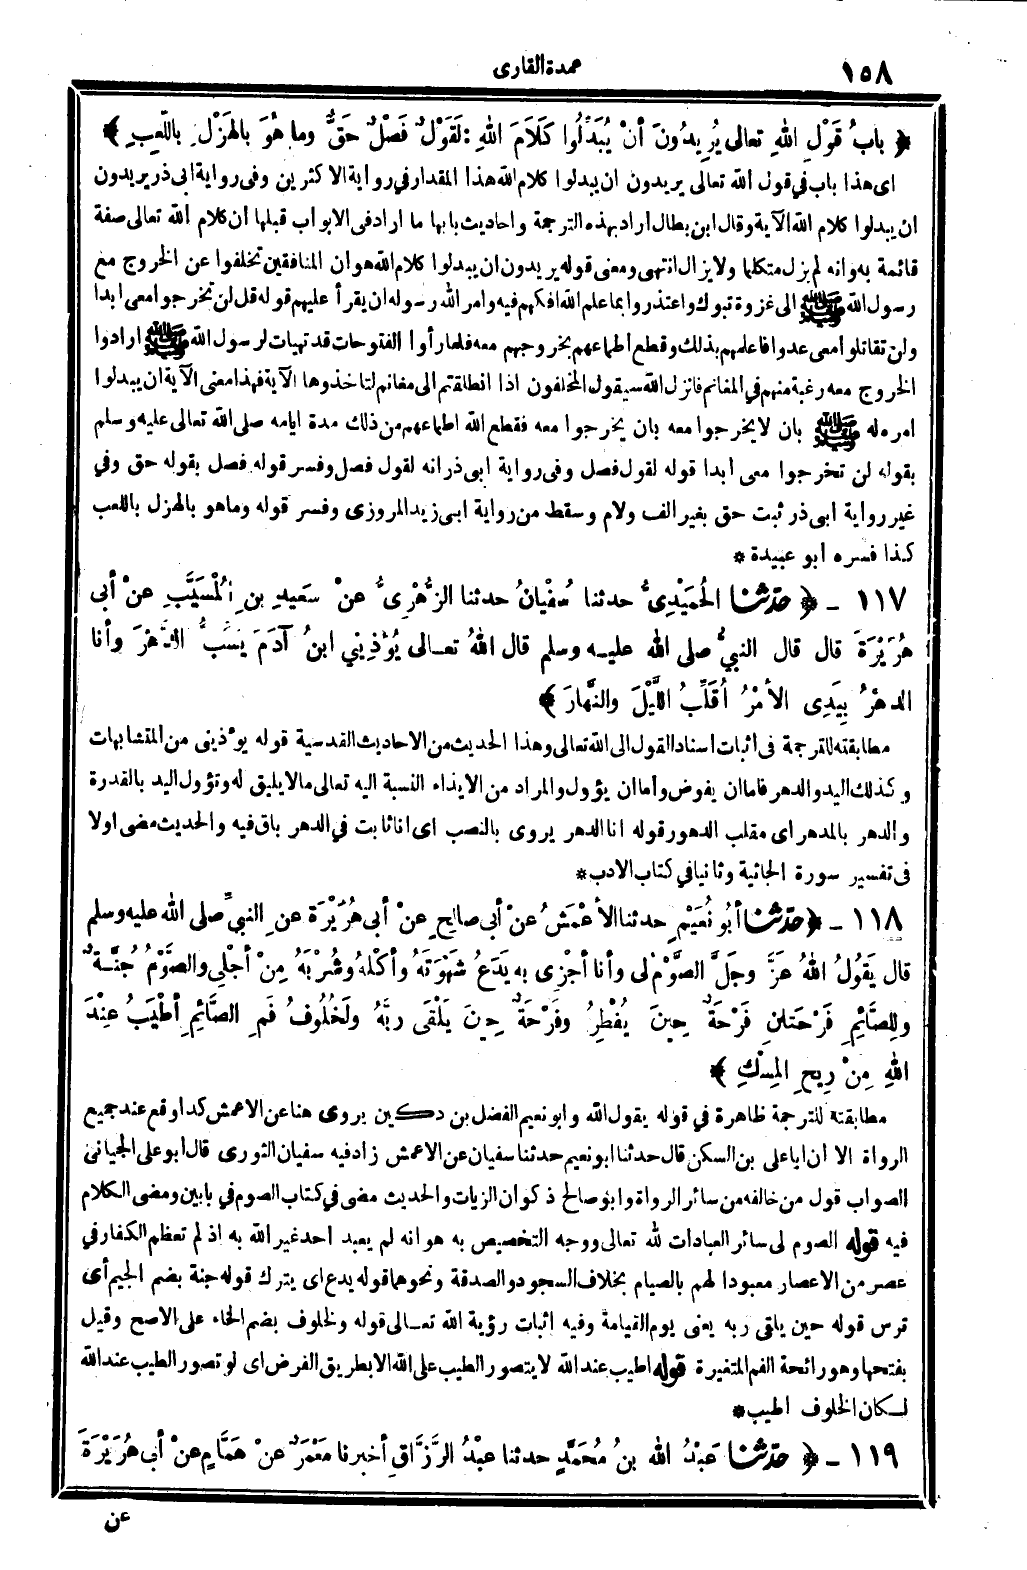 ١٥٨
عمدة القارى
﴿ بابُ قَوْلِ اللهِ تعالى يُرِيدُونَ أنْ يُبَدِّلُوا كَلَامَ اللهِ : لَقَوْلٌ فَصْلٌ حَقٌّ وما هُوَ بالهَزْلِ باللَّعِبِ ﴾
اى هذا باب فى قول الله تعالى يريدون ان يبدلوا كلام الله هذا المقدار فى رواية الاكثرين وفى رواية ابى ذر يريدون
ان يبدلوا كلام الله الآية وقال ابن بطال اراد بهذه الترجمة واحاديث بابها ما اراد فى الابواب قبلها ان كلام الله تعالى صفة
قائمة به وانه لم يزل متكلما ولا يزال انتهى ومعنى قوله يريدون ان يبدلوا كلام الله هو ان المنافقين تخلفوا عن الخروج مع
رسول الله ﷺ الى غزوة تبوك واعتذروا بما علم الله افكهم فيه وامر الله رسوله ان يقرأ عليهم قوله قل لن تخرجوا معى ابدا
ولن تقاتلوا معى عدوا فاعلمهم بذلك وقطع اطماعهم بخروجهم معه فلما رأوا الفتوحات قد تهيات لرسول الله ﷺ ارادوا
الخروج معه رغبة منهم في المغانم فانزل الله سيقول المخلفون اذا انطلقتم الى مغانم لتاخذوها الآية فهذا معنى الآية ان يبدلوا
امره له ﷺ بان لا يخرجوا معه بان يخرجوا معه فقطع الله اطماعهم من ذلك مدة ايامه صلى الله تعالى عليه وسلم
بقوله لن تخرجوا معى ابدا قوله لقول فصل وفى رواية ابى ذر انه لقول فصل وفسر قوله فصل بقوله حق وفي
غير رواية ابى ذر ثبت حق بغير الف ولام وسقط من رواية ابى زيد المروزى وفسر قوله وما هو بالهزل باللعب
كذا فسره ابو عبيدة *
١١٧ - ﴿ حَدَّثَنا الحُمَيْدِىُّ حدثنا سُفْيانُ حدثنا الزُّهْرِىُّ عنْ سَعِيدِ بنِ المُسَيَّبِ عنْ أبى
هُرَيْرَةَ قال قال النبيُّ صلى الله عليه وسلم قال اللهُ تعالى يُؤْذِيني ابنُ آدَمَ يَسُبُّ الدَّهْرَ وأنا
الدهْرُ بِيَدِى الأمْرُ أُقَلِّبُ اللَّيْلَ والنَّهارَ ﴾
مطابقته للترجمة فى اثبات اسناد القول الى الله تعالى وهذا الحديث من الاحاديث القدسية قوله يؤذينى من المتشابهات
وكذلك اليد والدهر فاما ان يفوض وأما ان يؤول والمراد من الايذاء النسبة اليه تعالى ما لا يليق له وتؤول اليد بالقدرة
والدهر بالمدهر اى مقلب الدهور قوله انا الدهر يروى بالنصب اى انا ثابت في الدهر باق فيه والحديث مضى اولا
فى تفسير سورة الجاثية وثانيا في كتاب الادب *
١١٨ - ﴿ حَدَّثَنا أبُو نُعَيْمٍ حدثنا الأعْمَشُ عنْ أبى صالِحٍ عنْ أبى هُرَيْرَةَ عنِ النبيِّ صلى الله عليه وسلم
قال يَقُولُ اللهُ عزَّ وجَلَّ الصَّوْمُ لى وأنا أجْزِى به يَدَعُ شَهْوَتَهُ وأكْلَهُ وشُرْبَهُ مِنْ أجْلِى والصَّوْمُ جُنَّةٌ
ولِلصَّائِمِ فَرْحَتانِ فَرْحَةٌ حِينَ يُفْطِرُ وفَرْحَةٌ حِينَ يَلْقَى ربَّهُ ولَخُلُوفُ فَمِ الصَّائِمِ أطْيَبُ عِنْدَ
اللهِ مِنْ رِيحِ المِسْكِ ﴾
مطابقته للترجمة ظاهرة في قوله يقول الله وابو نعيم الفضل بن دكين يروى هنا عن الاعمش كذا وقع عند جميع
الرواة الا ان ابا على بن السكن قال حدثنا ابو نعيم حدثنا سفيان عن الاعمش زاد فيه سفيان الثورى قال أبو على الجيانى
الصواب قول من خالفه من سائر الرواة وابو صالح ذكوان الزيات والحديث مضى في كتاب الصوم في بابين ومضى الكلام
فيه قوله الصوم لى سائر العبادات لله تعالى ووجه التخصيص به هو انه لم يعبد احد غير الله به اذ لم تعظم الكفار في
عصر من الاعصار معبودا لهم بالصيام بخلاف السجود والصدقة ونحوهما قوله يدع اى يترك قوله جنة بضم الجيم أى
ترس قوله حين يلقى ربه يعنى يوم القيامة وفيه اثبات رؤية الله تعالى قوله ولخلوف بضم الخاء على الاصح وقيل
بفتحها وهو رائحة الفم المتغيرة قوله اطيب عند الله لا يتصور الطيب على الله الا بطريق الفرض اى لو تصور الطيب عند الله
لكان الخلوف اطيب *
١١٩ - ﴿ حَدَّثَنا عَبْدُ الله بنُ مُحَمَّدٍ حدثنا عبْدُ الرَّزَّاقِ أخبرنا مَعْمَرٌ عنْ هَمَّامٍ عنْ أبى هُرَيْرَةَ
عن